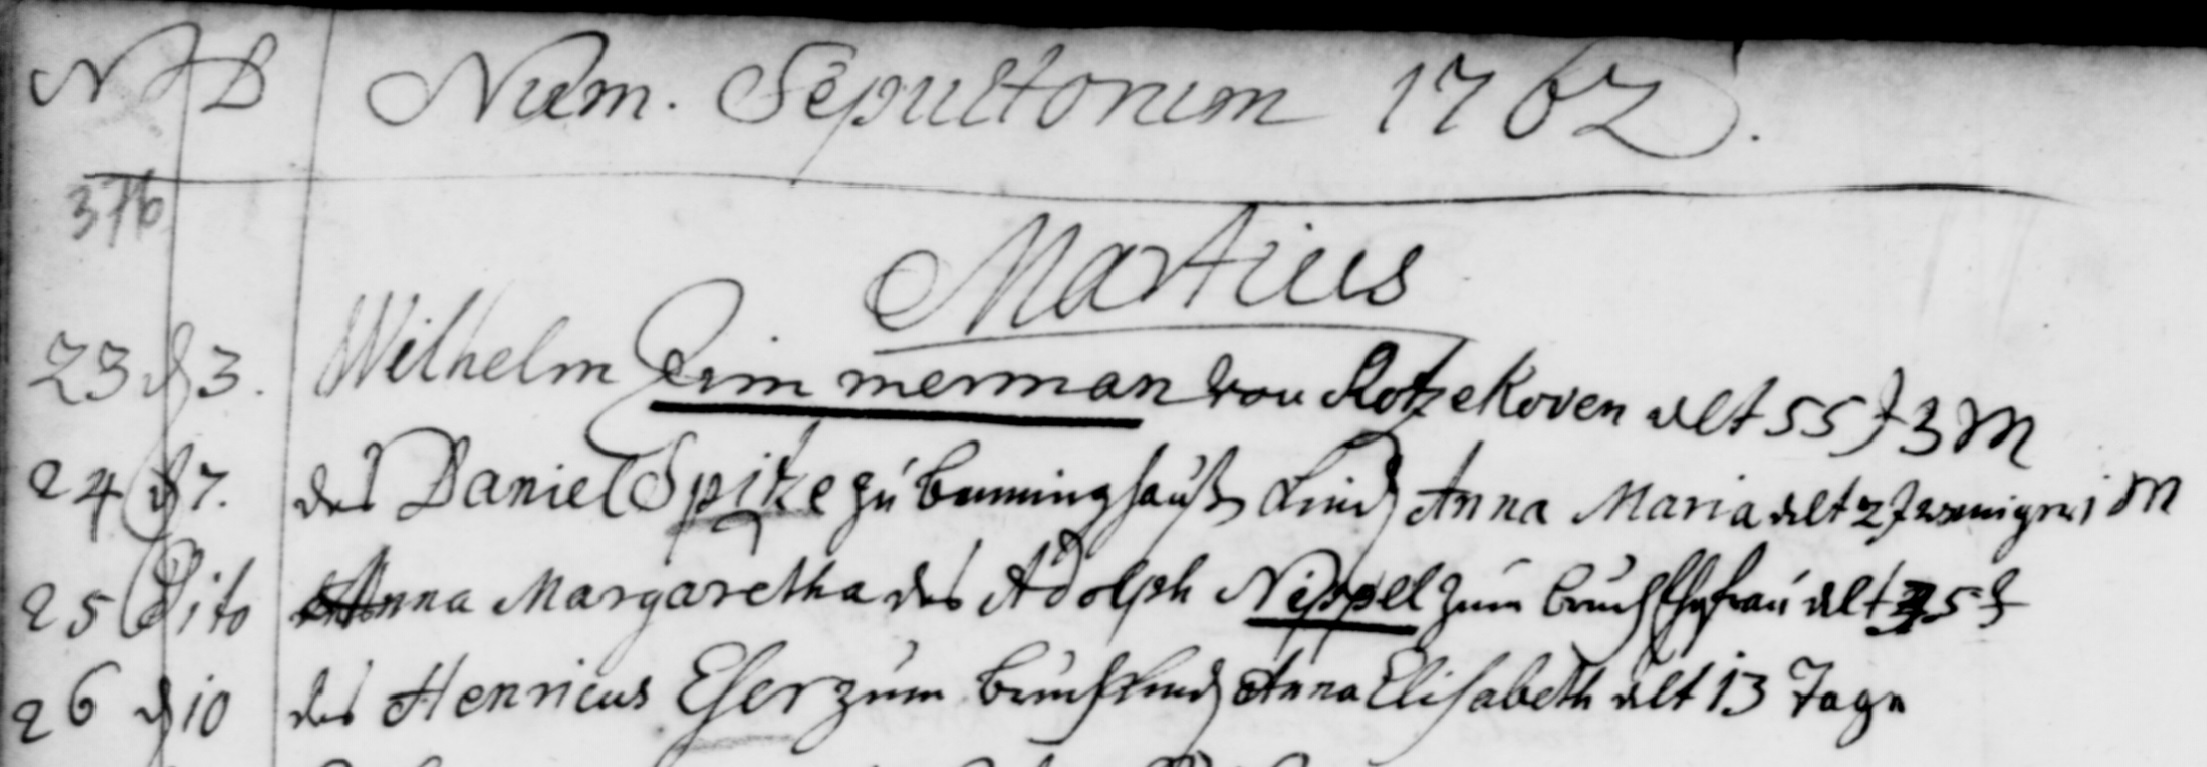 N D Num. Sepultorum 1762.
376
Martius
23 d 3. Wilhelm Zimmerman von Kotzekoven alt 55 J 3 M
24 d 7. des Daniel Spitze zu Benninghauß Kind Anna Maria alt 2 J weniger 1 M
25 Dito Anna Margaretha des Adolph Nippel zum bruch Ehefrau alt 35 J
26 d 10 des Henricus Eser zum bruch Kind Anna Elisabeth alt 13 Tage